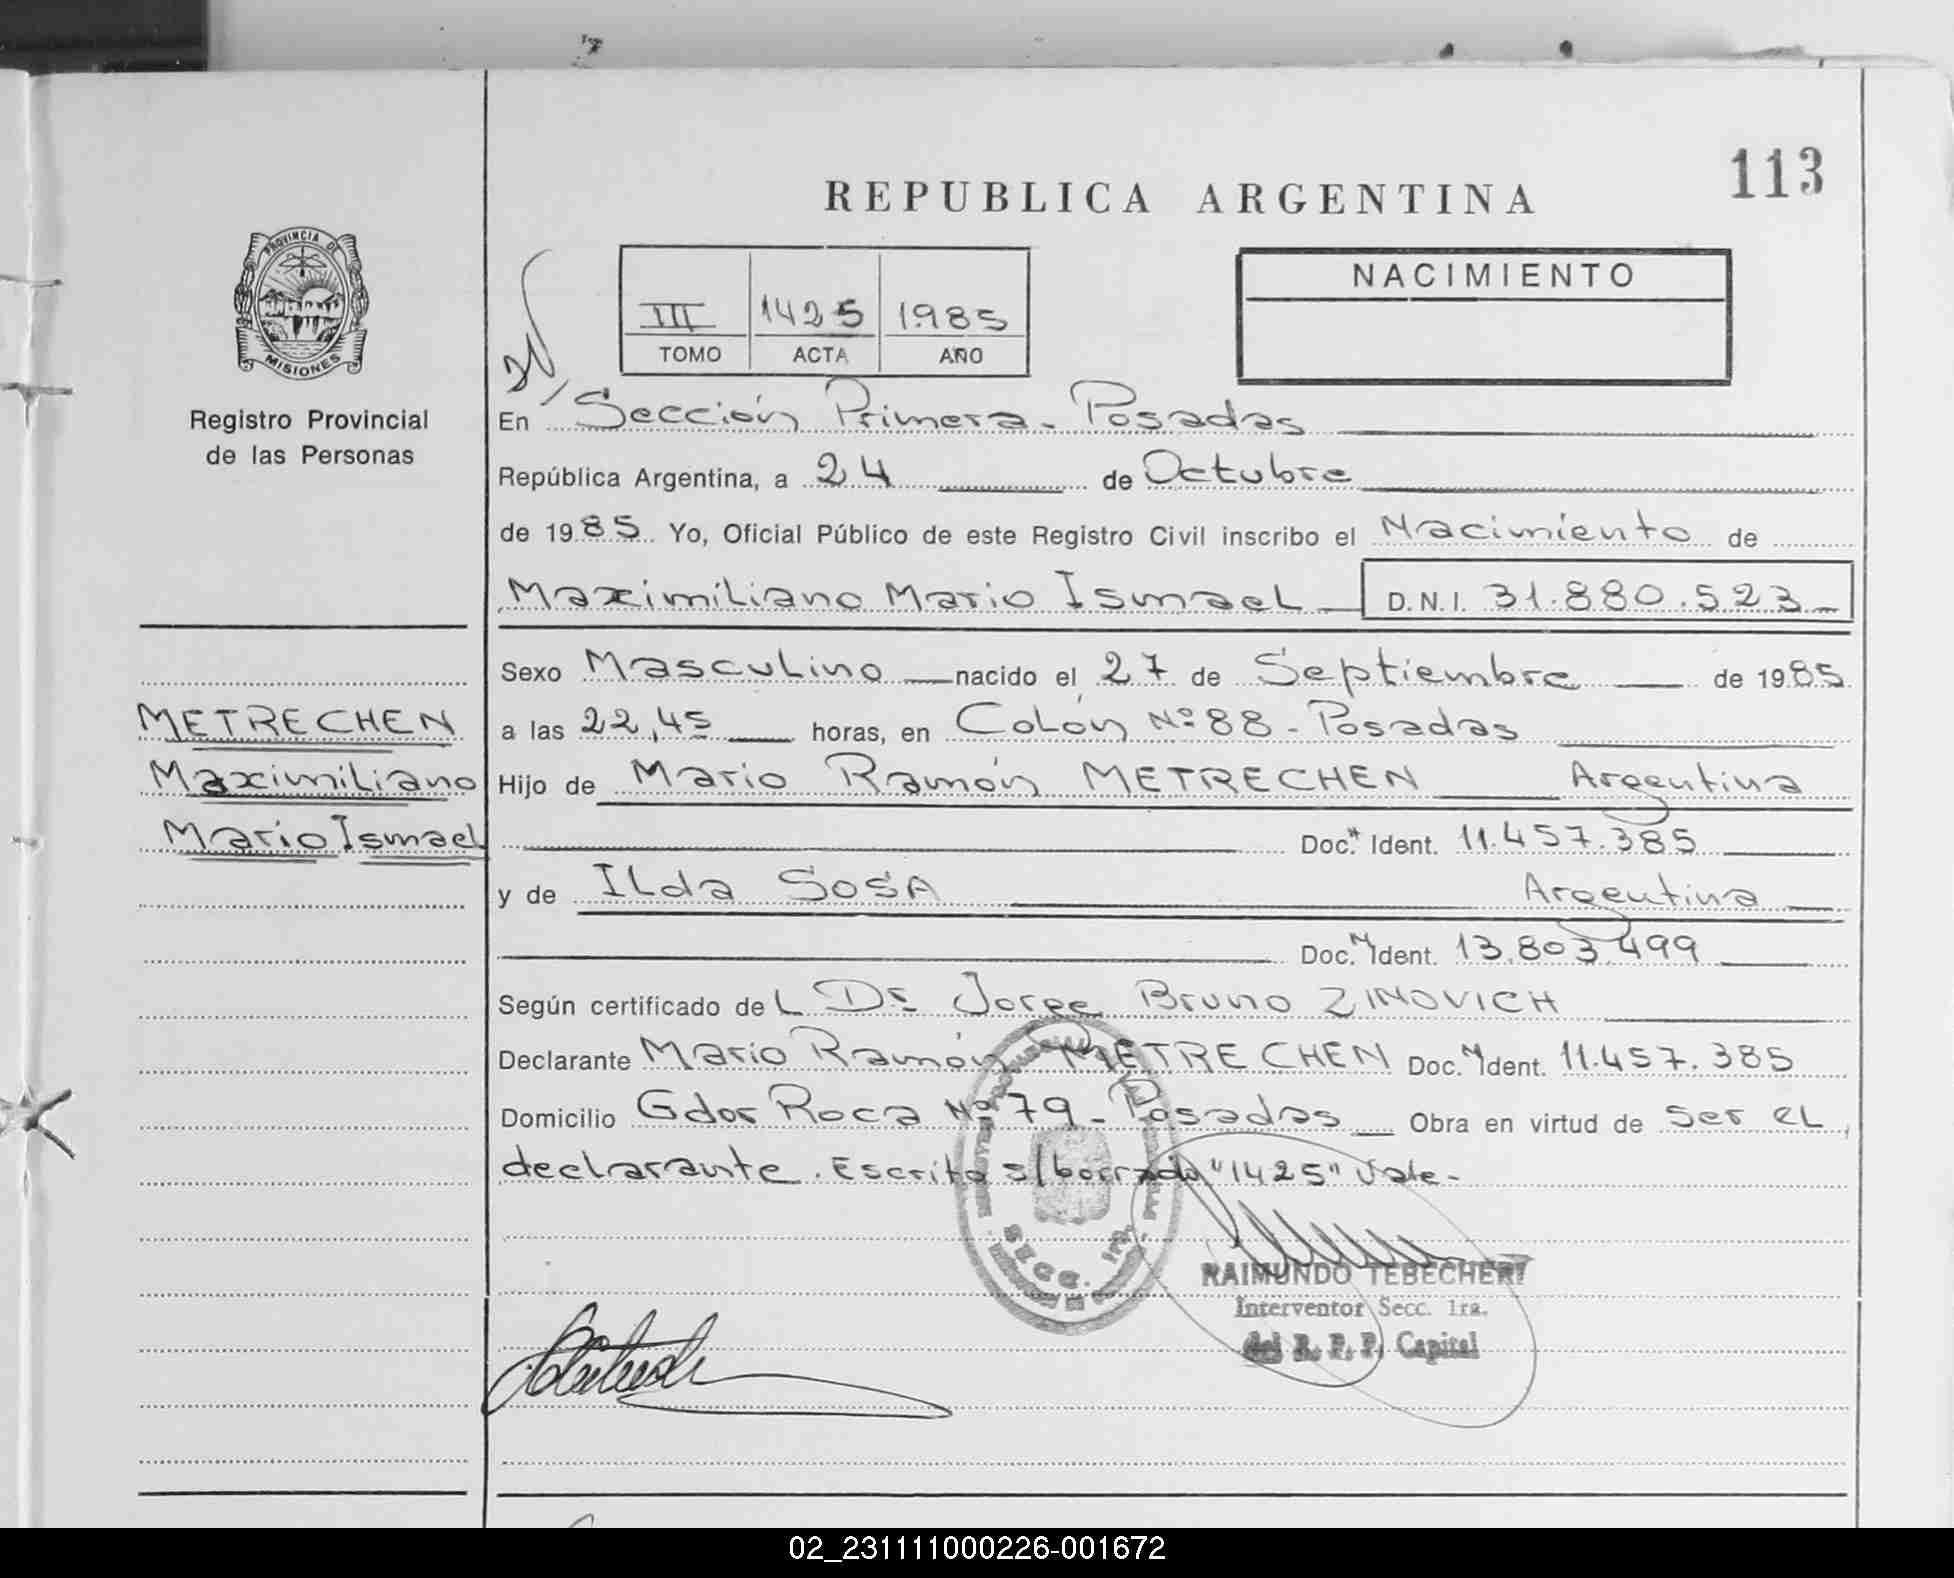 113
REPUBLICA ARGENTINA
PROVINCIA DE
MISIONES
Registro Provincial
de las Personas
III 1425 1985
TOMO ACTA AÑO
NACIMIENTO
En Sección Primera - Posadas
República Argentina, a 24 de Octubre
de 1985 Yo, Oficial Público de este Registro Civil inscribo el Nacimiento de
Maximiliano Mario Ismael D.N.I. 31.880.523
Sexo Masculino nacido el 27 de Septiembre de 1985
METRECHEN
a las 22,45 horas, en Colón Nº 88 - Posadas
Maximiliano
Hijo de Mario Ramón METRECHEN Argentina
Mario Ismael
Doc. Ident. 11.457.385
y de ILda SOSA Argentina
Doc. Ident. 13.803.499
Según certificado deL Dr Jorge Bruno ZINOVICH
Declarante Mario Ramón METRECHEN Doc. Ident. 11.457.385
Domicilio Gdor Roca Nº 79 - Posadas Obra en virtud de ser eL
declarante. Escrito s/borrado "1425" Vale-
SECC. 1ra.
RAIMUNDO TEBECHERI
Interventor Secc. 1ra.
del R. P. P. Capital
02_231111000226-001672